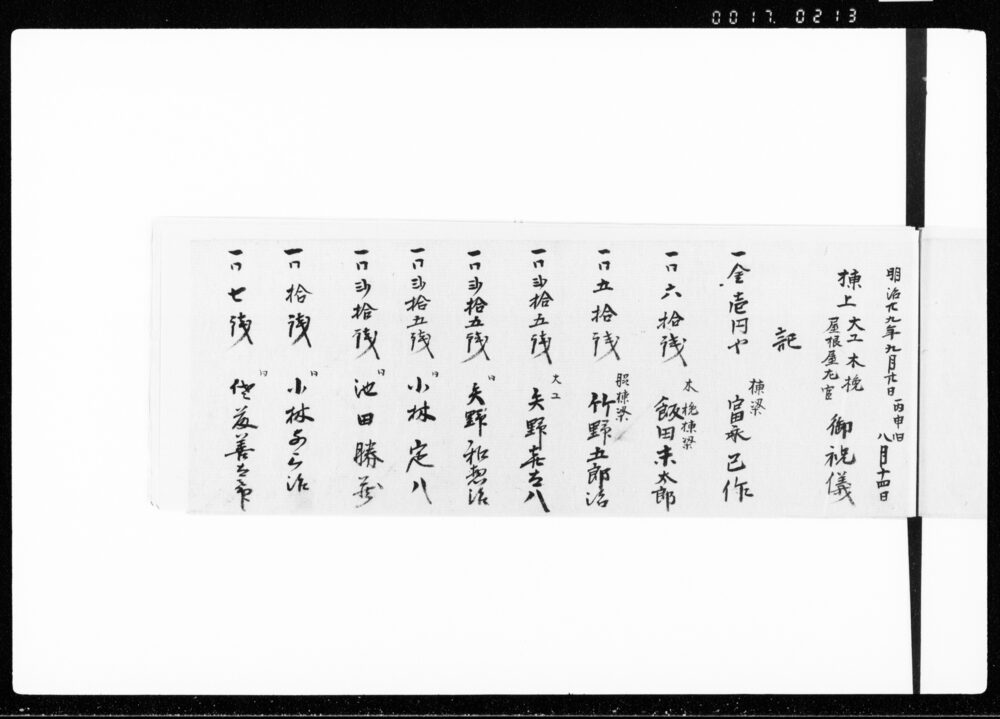 0017.0213
明治廿九年九月廿日 丙申旧八月十四日
棟上大工木挽
屋根屋左官
御祝儀
記
一金壱円也 棟梁 富永巳作
一口六拾銭 木挽棟梁 飯田末太郎
一口五拾銭 脇棟梁 竹野五郎治
一口弐拾五銭 大工 矢野喜太八
一口弐拾五銭 口 矢野和惣治
一口弐拾五銭 口 小林定八
一口弐拾銭 口 池田勝蔵
一口拾銭 口 小林治
一口七銭 口 善